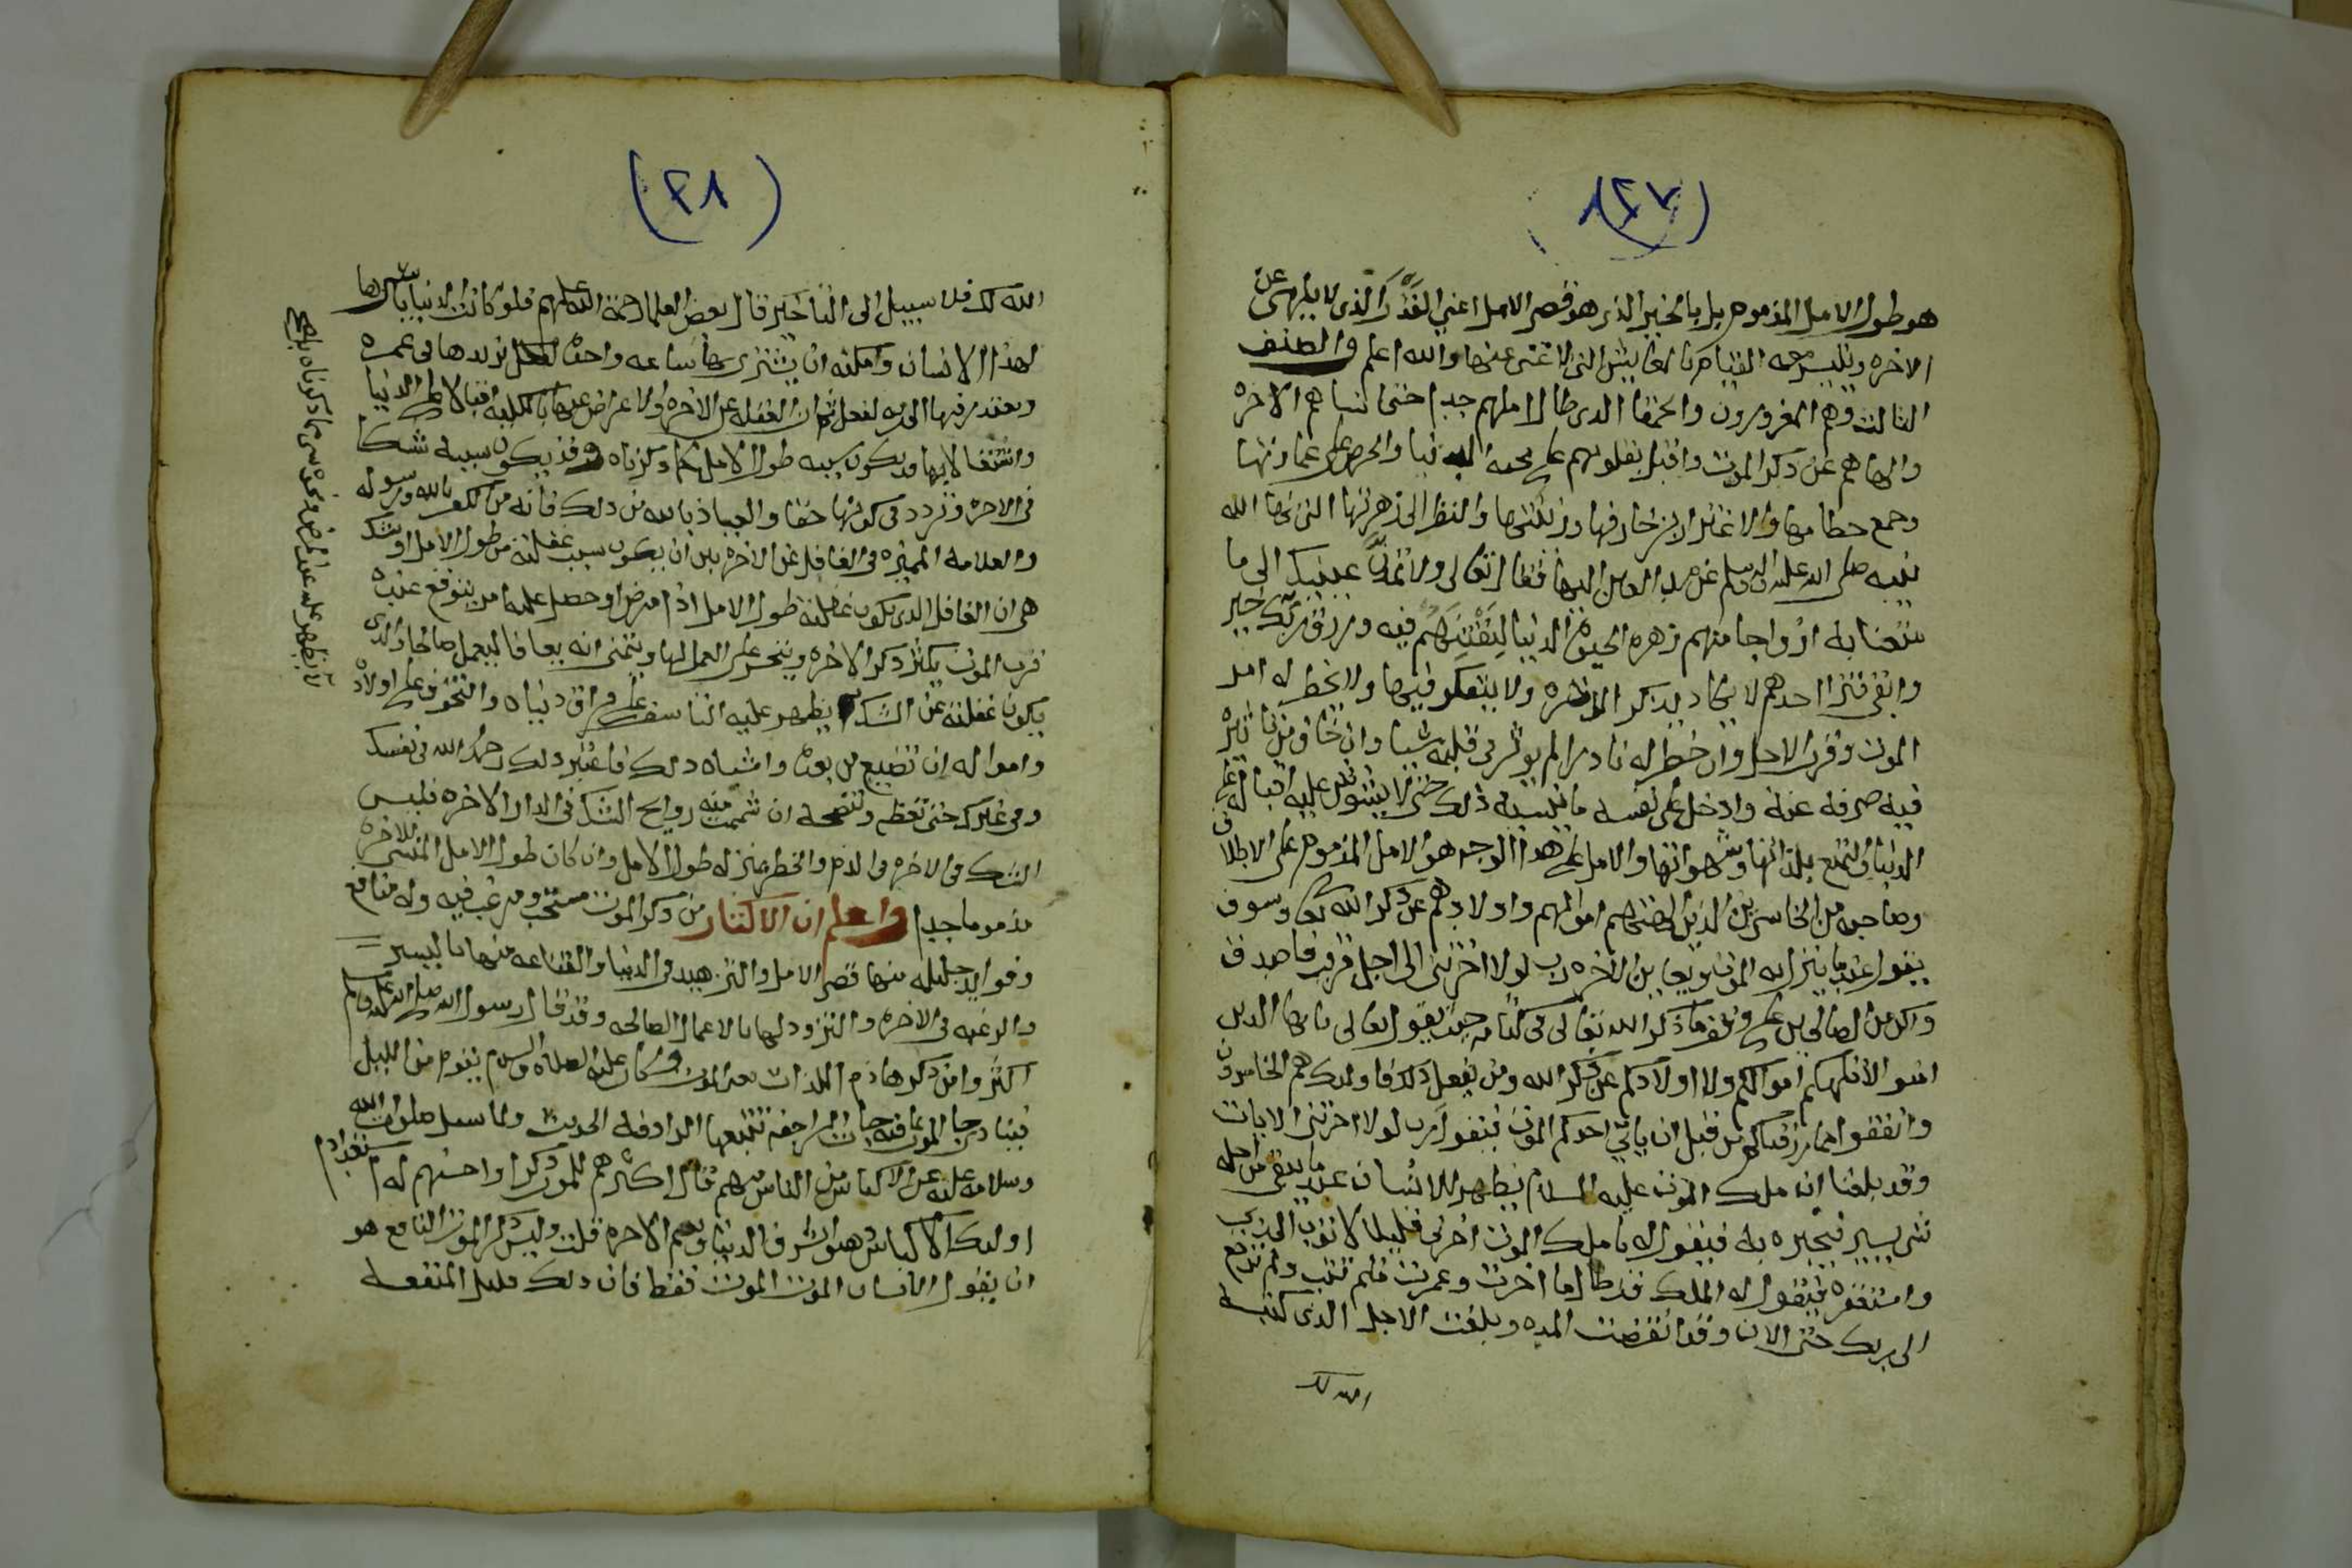 (٢٧)
هو طول الامل المذموم بل بالخير الذي هو قصر الامل اعني القدر الذي لا يلهي عن
الاخره ويتيسر معه القيام بالمعايش التي لا غنى عنها والله اعلم والصنف
الثالث وهم المغرورون والحمقا الذي طال املهم جدا حتى انساهم الاخره
والهاهم عن ذكر الموت واقبل بقلوبهم على محبة الدنيا والحرص على عمارتها
وجمع حطامها والاغترار بزخارفها وزينتها والنظر الى زهرتها التي نها الله
نبيه صلى الله عليه واله وسلم عن مد العين اليها فقال تعالى ولا تمدن عينيك الى ما
متعنا به ازواجا منهم زهره الحيوة الدنيا لنفتنهم فيه ورزق ربك خير
وابقى فترا احدهم لا يكاد يذكر الاخره ولا يتفكر فيها ولا يخطر له امد
الموت وقرب الاجل وان خطر له نادرا لم يوثر في قلبه شيا وان خاف من تاثيره
فيه صرفه عنه وادخل على نفسه ما ينسيه ذلك حتى لا يشوش عليه اقباله على
الدنيا والتمتع بلذاتها وشهواتها والامل على هذا الوجه هو الامل المذموم على الاطلاق
وصاحبه من الخاسرين الذين الهتهم اموالهم واولادهم عن ذكر الله تعا وسوف
يقول عند ما ينزل به الموت ويعاين الاخره رب لولا اخرتني الى اجل قريب فاصدق
واكن من الصالحين على وفق ما ذكر الله تعالى في كتابه حيث يقول تعالى يايها الذين
امنو لا تلهكم اموالكم ولا اولادكم عن ذكر الله ومن يفعل ذلك فاولئك هم الخاسرون
وانفقوا مما رزقناكم من قبل ان ياتي احدكم الموت فيقول رب لولا اخرتني الايات
وقد بلغنا ان ملك الموت عليه السلام يظهر للانسان عند ما يبقى من اجله
شي يسير فيخبره به فيقول له يا ملك الموت اخرني قليلا لاتوب الى ربي
واستغفره فيقول له الملك قد طالما اخرت وعمرت فلم تتب ولم ترجع
الى ربك حتى الان وقد انقرضت المده وبلغت الاجل الذي كتبه
الله لك
(٢٨)
الله لك فلا سبيل الى التاخير قال بعض العلما رحمة الله عليهم فلو كانت الدنيا باسرها
لهذا الانسان وامكنه ان يشتري بها ساعه واحدة لفعل يزيدها في عمره
ويعتذر فيها الى ربه لفعل ثم ان الغفله عن الاخره والاعراض عنها بالكليه اقبالا على الدنيا
واشتغالا بها قد يكون سببه طول الامل كما ذكرناه وقد يكون سببه شكا
في الاخره وتردد في كونها حقا والعياذ بالله من ذلك فانه من الكفر بالله ورسوله
والعلامه المميزه في الغافل عن الاخره بين ان يكون سبب غفلته من طول الامل او شك
هي ان الغافل الذي يكون غفلته طول الامل اذا مرض او حصل عليه امر يتوقع عنده
قرب الموت يكثر ذكر الاخره ويتحسر على العمل لها ويتمنى انه يعافا ليعمل صالحا والذي
يكون غفلته عن الشك يظهر عليه التاسف على فراق دنياه والتخوف على اولاده
وامواله ان تضيع من بعده واشباه ذلك فاعتبر ذلك رحمك الله في نفسك
وفي غيرك حتى تعظه وتنصحه ان شممت منه روايح الشك في الدار الاخره فليس
الشك في الاخره في الذم والخطر بمنزله طول الامل وان كان طول الامل المنسي للاخره
مذموما جدا واعلم ان الاكثار من ذكر الموت مستحب ومرغب فيه وله منافع
وفوايد جليله منها قصر الامل والتزهيد في الدنيا والقناعه منها باليسير
والرغبه في الاخره والتزود لها بالاعمال الصالحه وقد قال رسول الله صلى الله عليه وسلم
اكثروا من ذكر هاذم اللذات يعني الموت وكان عليه الصلاه والسلام يقوم من الليل
فينادي جا الموت بما فيه جات الراجفه تتبعها الرادفه الحديث ولما سيل صلوات الله
وسلامه عليه عن الاكياس من الناس من هم قال اكثرهم للموت ذكرا واحسنهم له استعدادا
اوليك الاكياس ذهبوا بشرف الدنيا ونعيم الاخره قلت وليس ذكر الموت النافع هو
ان يقول الانسان الموت الموت فقط فان ذلك قليل المنفعه